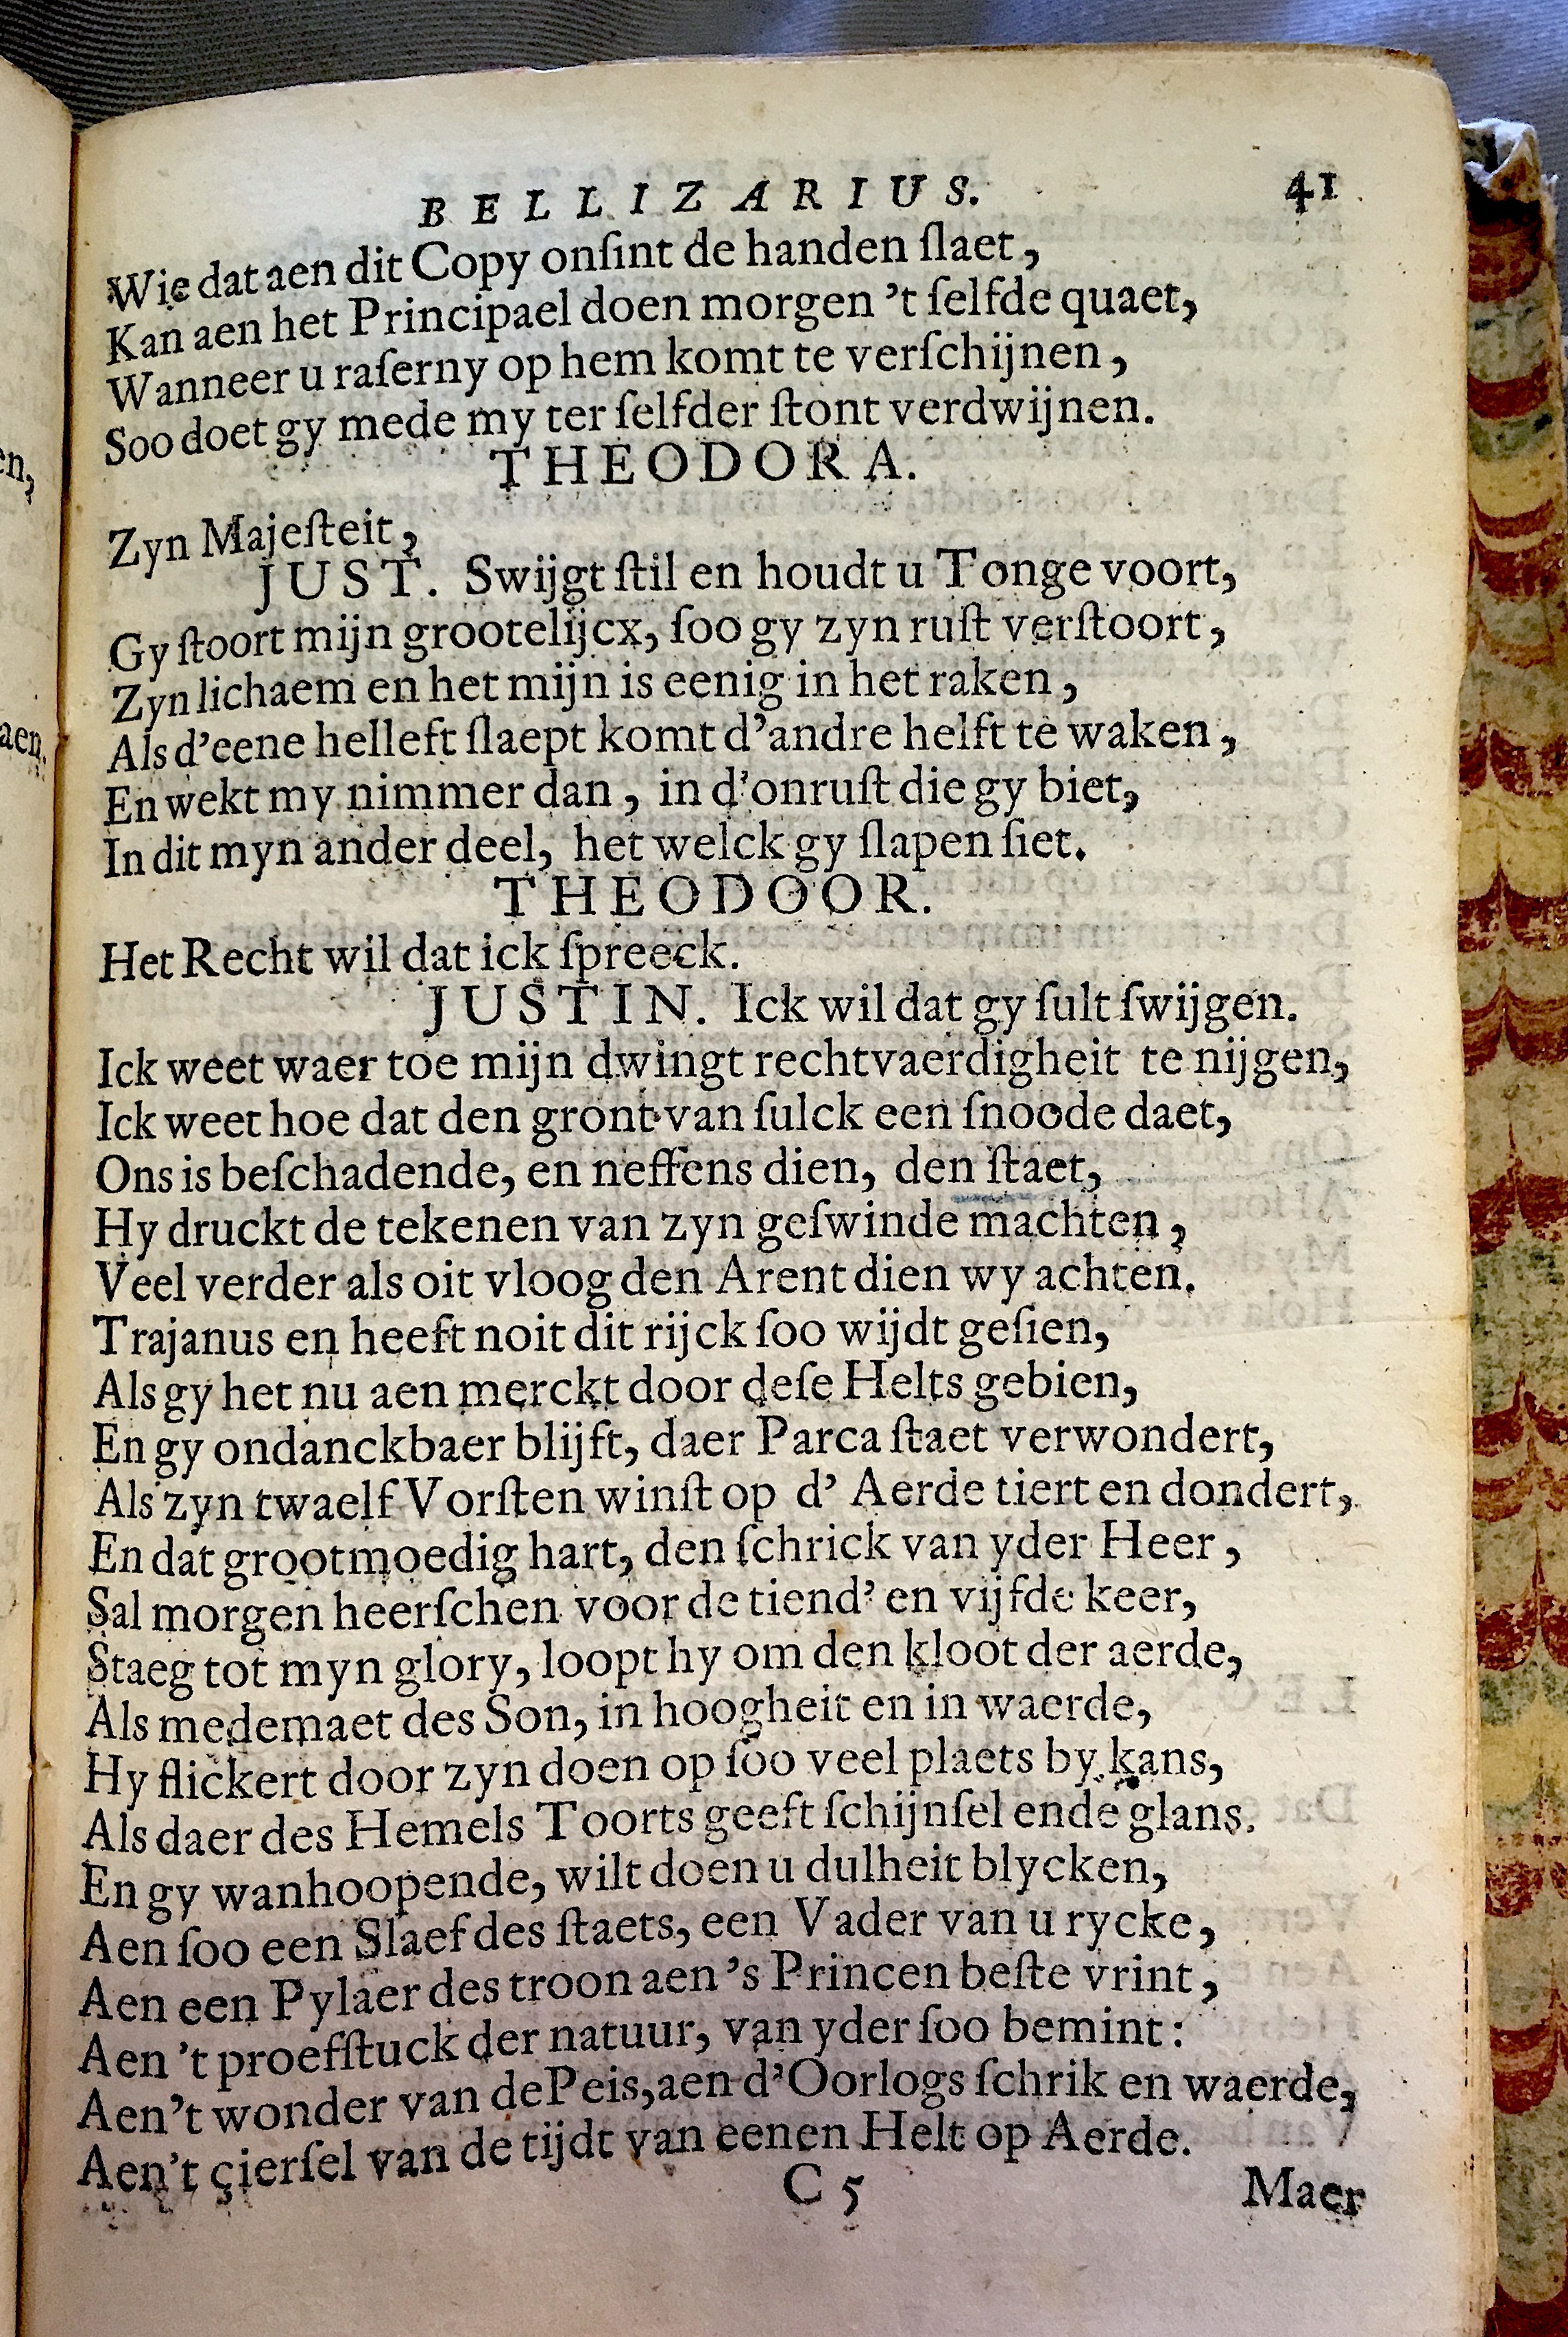 BELLIZARIUS. 41
Wie dat aen dit Copy onſint de handen ſlaet,
Kan aen het Principael doen morgen 't ſelfde quaet,
Wanneer u raſerny op hem komt te verſchijnen,
Soo doet gy mede my ter ſelfder ſtont verdwijnen.
THEODORA.
Zyn Majeſteit,
JUST. Swijgt ſtil en houdt u Tonge voort,
Gy ſtoort mijn grootelijcx, ſoo gy zyn ruſt verſtoort,
Zyn lichaem en het mijn is eenig in het raken,
Als d'eene helleft ſlaept komt d'andre helft te waken,
En wekt my nimmer dan, in d'onruſt die gy biet,
In dit myn ander deel, het welck gy ſlapen ſiet.
THEODOOR.
Het Recht wil dat ick ſpreeck.
JUSTIN. Ick wil dat gy ſult ſwijgen.
Ick weet waer toe mijn dwingt rechtvaerdigheit te nijgen,
Ick weet hoe dat den gront van ſulck een ſnoode daet,
Ons is beſchadende, en neffens dien, den ſtaet,
Hy druckt de tekenen van zyn geſwinde machten,
Veel verder als oit vloog den Arent dien wy achten.
Trajanus en heeft noit dit rijck ſoo wijdt geſien,
Als gy het nu aen merckt door deſe Helts gebien,
En gy ondanckbaer blijft, daer Parca ſtaet verwondert,
Als zyn twaelf Vorſten winſt op d' Aerde tiert en dondert,
En dat grootmoedig hart, den ſchrick van yder Heer,
Sal morgen heerſchen voor de tiend' en vijfde keer,
Staeg tot myn glory, loopt hy om den kloot der aerde,
Als medemaet des Son, in hoogheit en in waerde,
Hy flickert door zyn doen op ſoo veel plaets by kans,
Als daer des Hemels Toorts geeft ſchijnſel ende glans.
En gy wanhoopende, wilt doen u dulheit blycken,
Aen ſoo een Slaef des ſtaets, een Vader van u rycke,
Aen een Pylaer des troon aen 's Princen beſte vrint,
Aen 't proefſtuck der natuur, van yder ſoo bemint:
Aen't wonder van de Peis, aen d'Oorlogs ſchrik en waerde,
Aen't çierſel van de tijdt van eenen Helt op Aerde.
C 5 Maer
en,
aen.